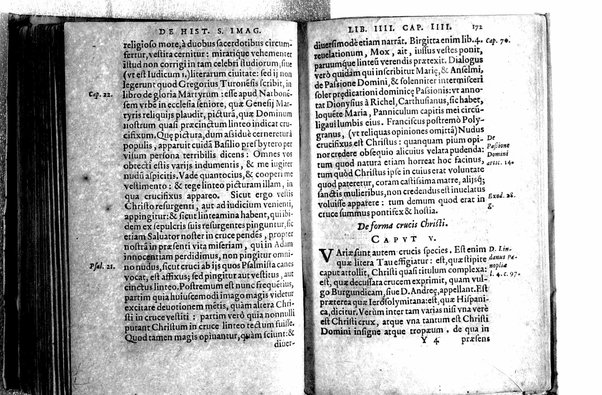 DE HIST. S. IMAG.
religioso more, à duobus sacerdotibus circum-
fertur, vestita cernitur: mirariq́ue vehementer
illud non corrigi in tam celebri studiorum, siue
(vt est Iudicum 1.) literarum ciuitate: sed ij non
legerunt quod Gregorius Turonēsis scribit, in
Cap. 22.
libro de gloria Martyrum: esse apud Narbonē-
sem vrbē in ecclesia seniore, quæ Genesij Mar-
tyris reliquijs plaudit, picturā, quæ Dominum
nostrum quasi præcinctum linteo indicat cru-
cifixum. Quę pictura, dum assiduè cerneretur à
populis, apparuit cuidā Basilio presbytero per
visum persona terribilis dicens: Omnes vos
obtecti estis varijs indumentis, & me iugiter
nudū aspicitis. Vade quantocius, & cooperi me
vestimento: & tege linteo picturam illam, in
qua crucifixus appareo. Sicut ergo vestis
Christo resurgenti, aut ad iudicium venienti,
appingitur: & sicut linteamina habent, qui ibi-
dem ex sepulcris suis resurgentes pinguntur, sic
etiam Saluator noster in cruce pendēs, propter
nostrā in præsenti vita miseriam, qui in Adam
innocentiam perdidimus, non pingitur omni-
Psal. 21.
no nudus, sicut cruci ab ijs quos Psalmista canes
vocat, est affixus; sed pingitur aut vestitus, aut
cinctus linteo. Postremum est nunc frequētius,
partim quia huiusmodi imago magis videtur
excitare deuotionem mētis, quàm altera Chri-
sti in cruce vestiti: partim verò quia nonnulli
putant Christum in cruce linteo tectum fuisse.
Quod tamen magis opinantur, quàm sciunt: &
diuer-
LIB. IIII. CAP. IIII. 172
diuersimodè etiam narrāt. Birgitta enim lib. 4. Cap. 70.
reuelationum, Mox, ait, iussus vestes ponit,
paruumque linteū verendis prætexit. Dialogus
verò quidam qui inscribitur Marię, & Anselmi,
de Passione Domini, & solenniter interseri
solet prędicationi dominicę Passionis: vt anno-
tat Dionysius à Richel, Carthusianus, sic habet,
loquēte Maria, Panniculum capitis mei circū-
ligaui lumbis eius. Franciscus postremò Poly-
granus, (vt reliquas opiniones omittā) Nudus
crucifixus est Christus: quanquam pium opi-
De Passione Domini
nor credere obsequio alicuius velata pudenda:
tum quod natura etiam horreat hoc facinus,
asser. 14.
tum quòd Christus ipse in cuius erat voluntate
quod pateretur, coram castissima matre, alijsq́;
sanctis mulieribus, non credendus est inuelatus
voluisse apparere: tum demum quod erat in
Exod. 28. g.
cruce summus pontifex & hostia.
De forma crucis Christi.
CAPVT V.
VAriæ sunt autem crucis species. Est enim
D. Lindanus Panopliæ l. 4. c. 97.
quæ litera T au effigiatur: est, quæ stipite
caput attollit, Christi quasi titulum complexa:
est, quæ decussata crucem exprimit, quam vul-
go Burgundicam, siue D. Andreę, appellant. Est
præterea quæ Ierosolymitana: est, quæ Hispani-
ca, dicitur. Verùm inter tam varias nisi vna verè
est Christi crux, atque vna tantum est Christi
Domini insigne atque tropæum. de qua in
Y 4 præsens